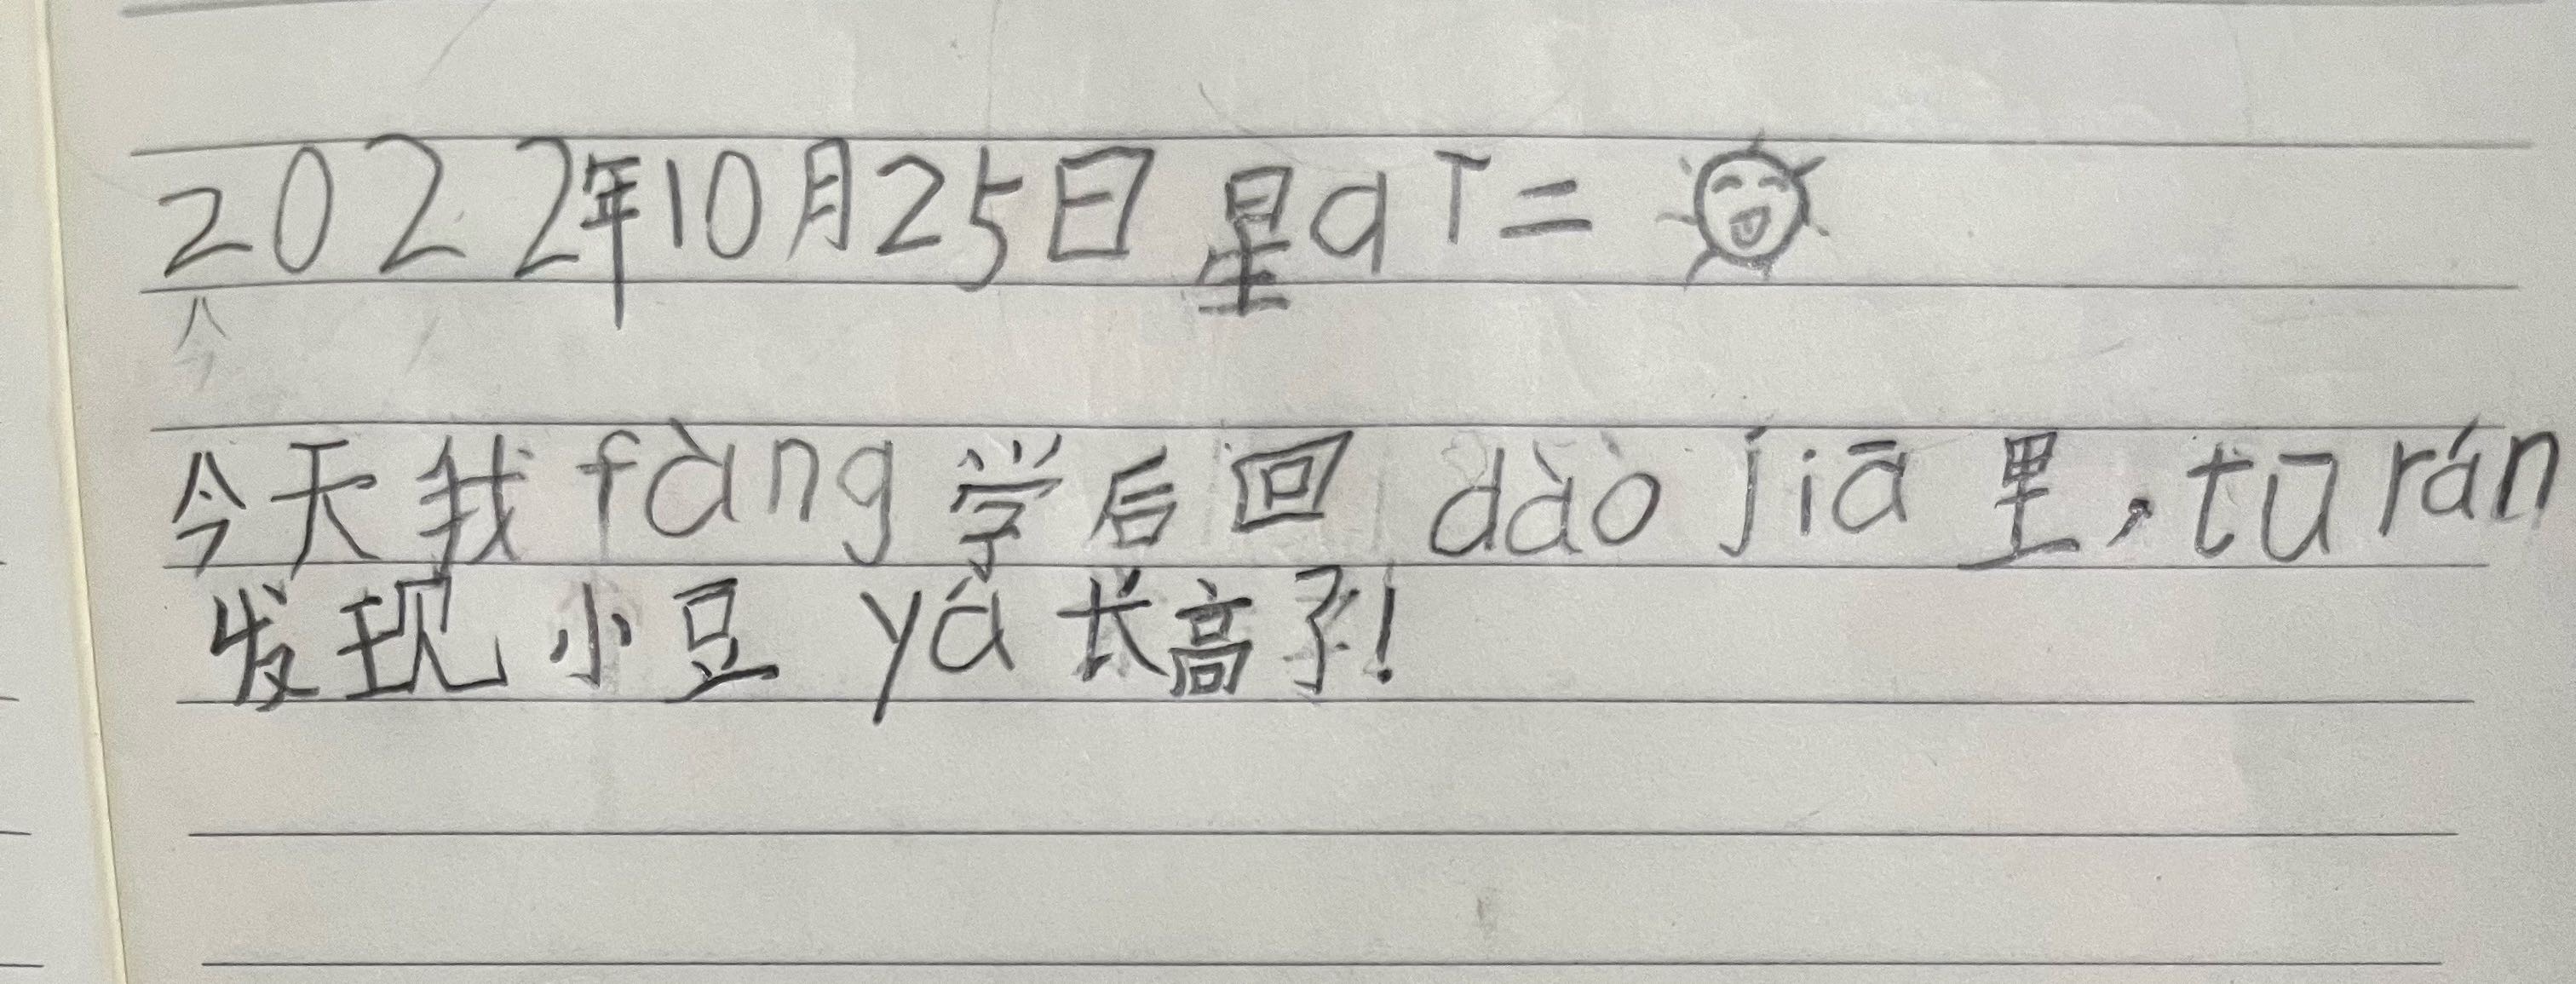 2022年10月25日 星qī二
今
今天我fàng学后回dào jiā里，tū rán
发现小豆yá长高了！